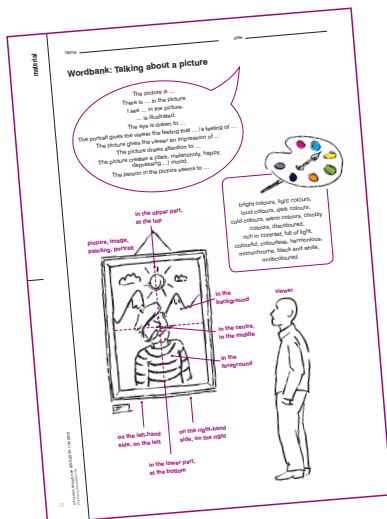 material
name
date
Wordbank: Talking about a picture
The picture is …
There is … in the picture.
I see … in the picture.
… is illustrated.
The eye is drawn to …
The portrait gives the viewer the feeling that … / a feeling of …
The picture gives the viewer an impression of …
The picture draws attention to …
The picture creates a (dark, melancholy, happy,
depressing …) mood.
The person in the picture seems to …
bright colours, light colours,
loud colours, dark colours,
cold colours, warm colours, chintzy
colours, discoloured,
rich in contrast, full of light,
colourful, colourless, harmonious,
monochrome, black and white,
multicoloured
in the upper part,
at the top
picture, image,
painting, portrait
in the
background
viewer
in the centre,
in the middle
in the
foreground
on the left-hand
side, on the left
on the right-hand
side, on the right
in the lower part,
at the bottom